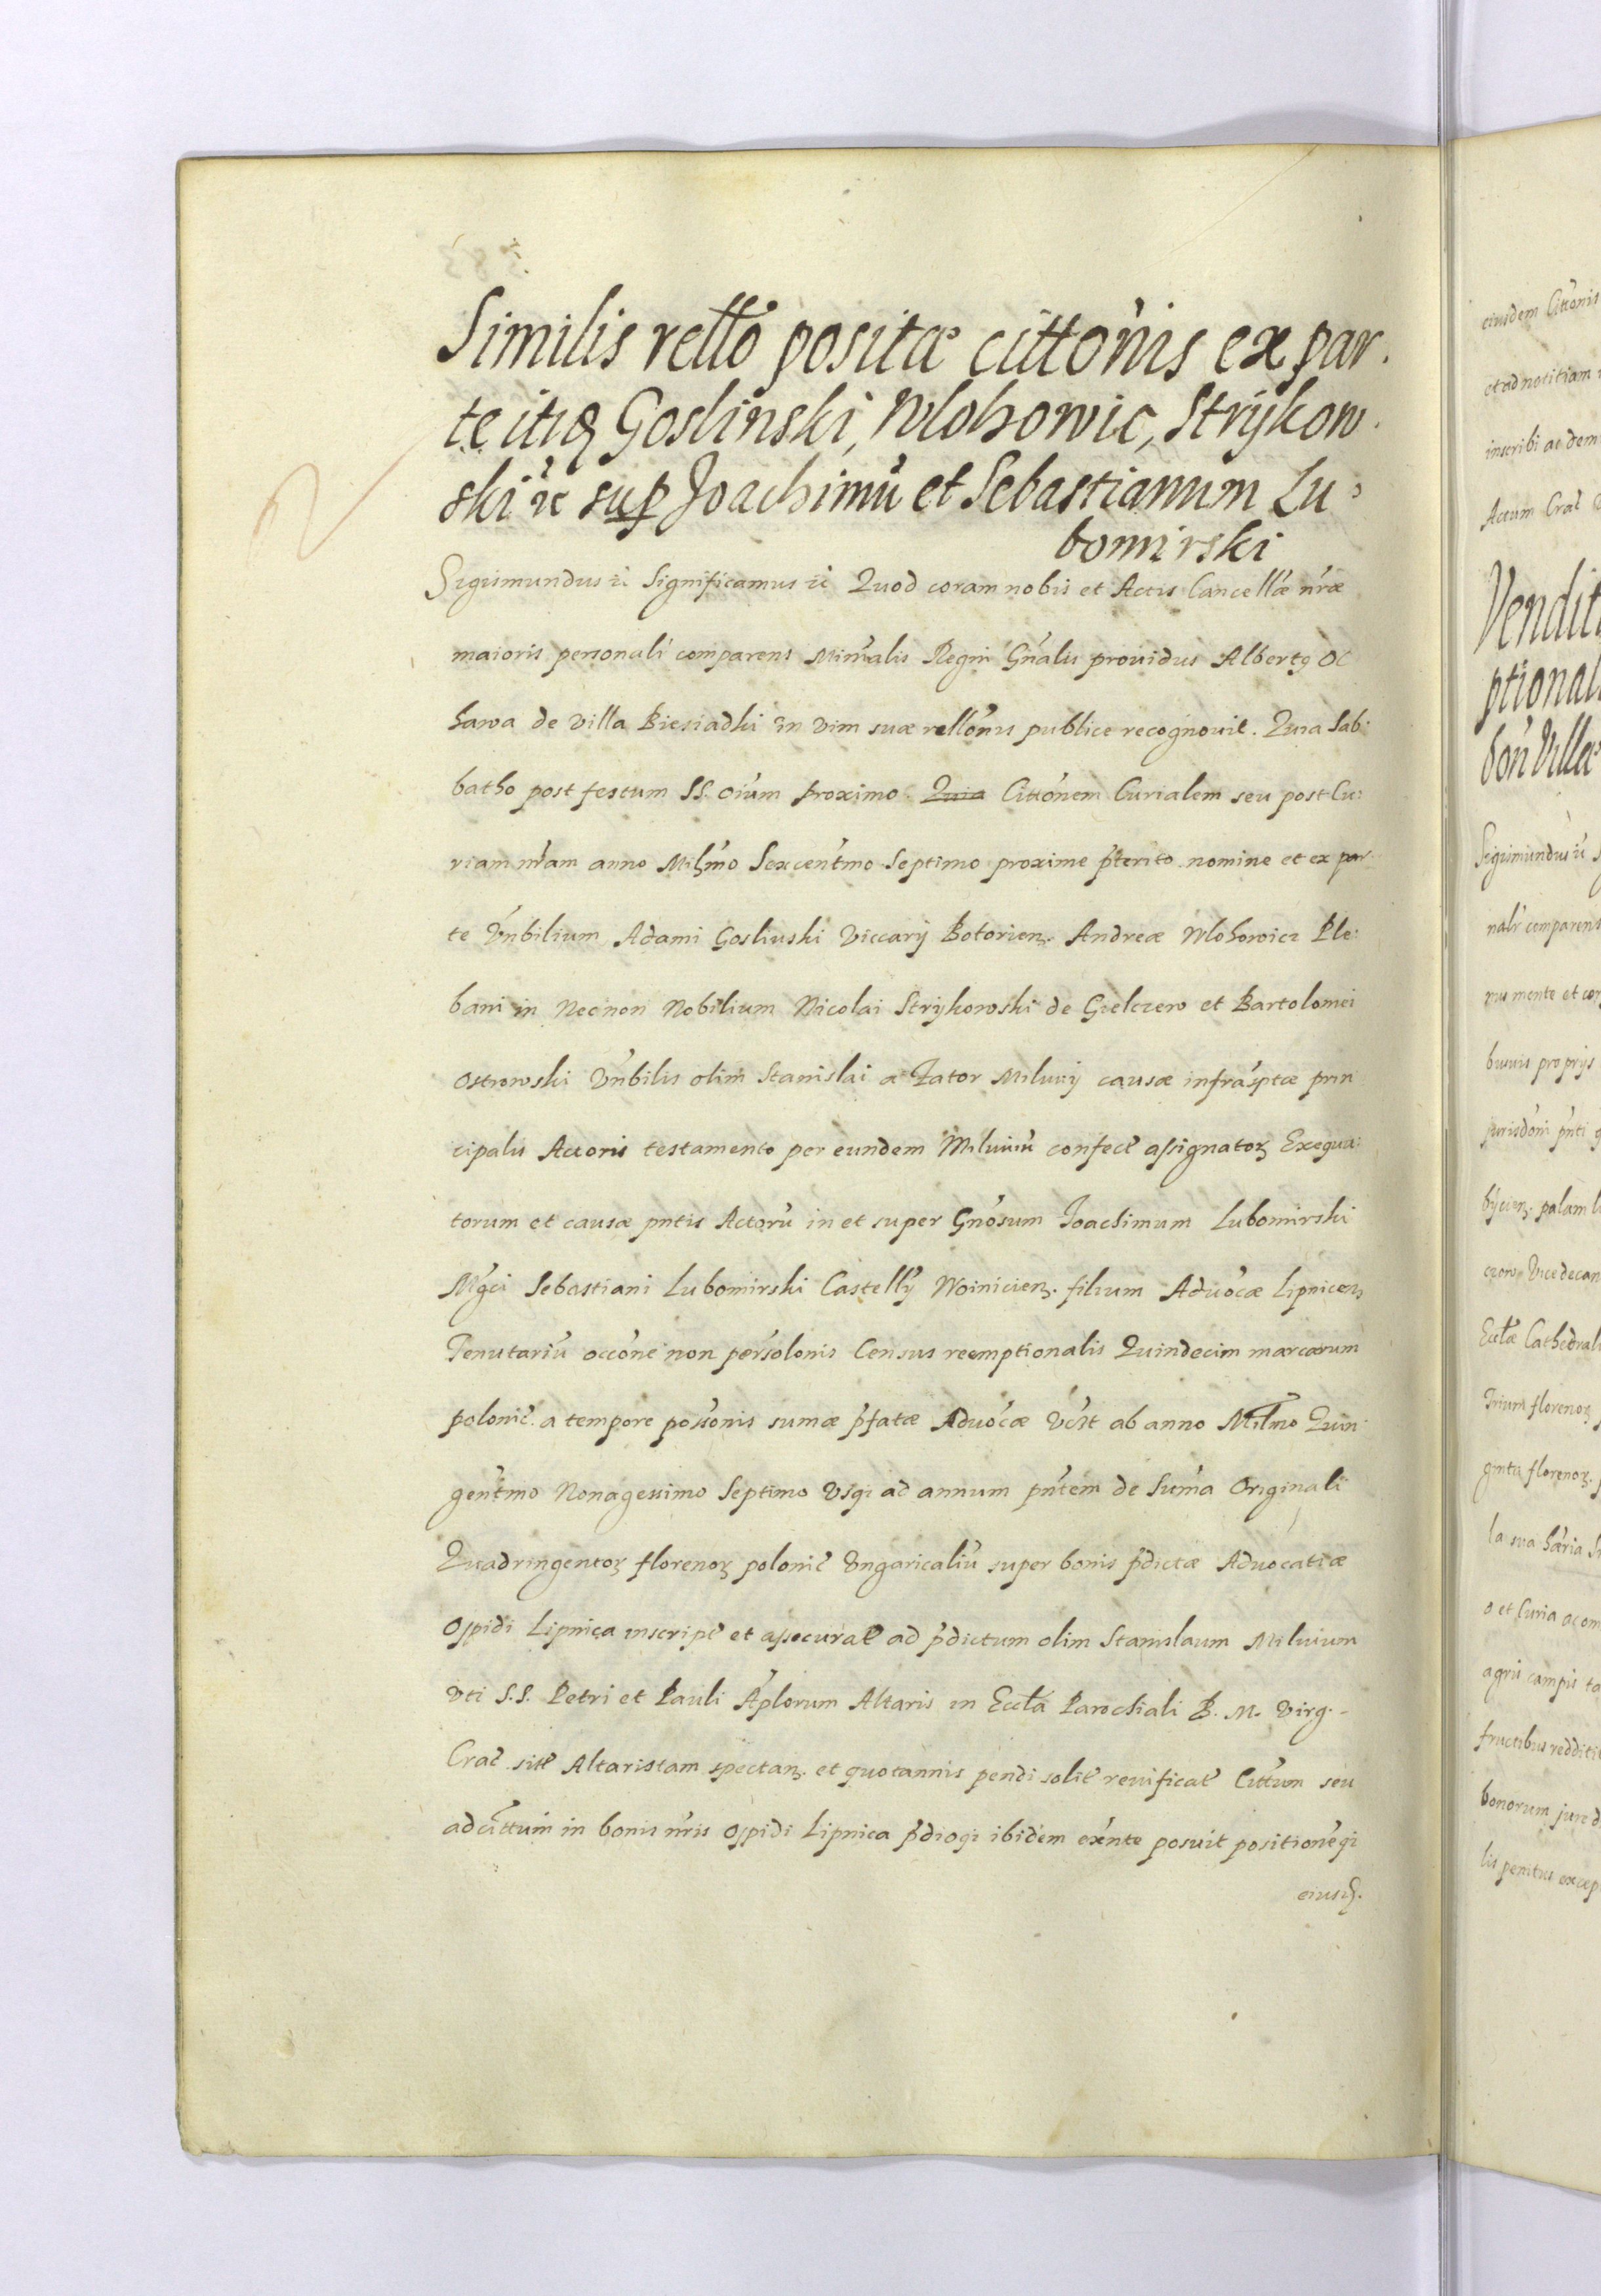 Similis rello positæ cittonis ex par.
te itiđ Goslinski, Wlohowic, Strijkow.
ski ic sup Joachimũ et Sebastianum Lu
bomirski
Sigismundus ic Significamus ic Quod coram nobis et Actis Cancellæ nræ
maioris personali comparens Minralis Regni Gnalis providus Albertq Oc
hawa de villa Biesiadki in vim suæ rellonis publice recognovit. Quia Sab:
batho post festum SS. Oium proximo. Quia Cittonem Curialem seu post Cu:
riam nram anno Millmo Sexcentmo Septimo proxime pterito nomine et ex par
te Vnbilium Adami Gosliuski Viccarij Botorienz. Andreæ Wlohowicz Ple:
bani in Necnon Nobilium Nicolai Strijkowski de Gielczew et Bartolomei
Ostrowski Vnbilis olim Stanislai a Zator Miluij causæ infrascptæ prin
cipalis Actoris testamento per eundem Miluiũ confect assignatoꝝ Exequu:
torum et causæ pntis Actorũ in et super Gnosum Joachimum Lubomirski
Mgci Sebastiani Lubomirski Castellij Woinicienz. filium Advocæ Lipnicenz
Tenutariũ occone non persolonis Census reemptionalis Quindecim marcarum
polonic. a tempore possonis sumæ pfatæ Advocæ Vczt ab anno Millmo Quin
gentmo Nonagessimo Septimo Vsqꝫ ad annum pntem de Suma Originali
Quadringentoꝝ florenoꝝ polonic Vngaricaliũ super bonis pdictæ Advocatiæ
Oppidi Lipnica inscript et assecurat ad pdictum olim Stanislaum Miluium
Vti S.S. Petri et Pauli Aplorum Altaris in Eccla Parochiali B. M. Virg.
Crac sitt Altaristam spectanz. et quotannis pendi solit reuificat Cittum seu
adcittum in bonis nris Oppidi Lipnica pdioqꝫ ibidem exnte posuit positioneqꝫ
eiusđ.
eiusdem Cittonis
et ad notitiam
inscribi ac dem
Actum Crac
Vendit
ptional
bon Villæ
Sigismundus ic
nalr comparens
nu mente et cor
buuis proprijs
jurisdoni pnti
bijcienz. palam l
czow Vicedecan
Ecclæ Cathedral
Trium florenoꝝ
ginta florenoꝝ.
la sua hæria
o et Curia
agris campis
fructibus redditi
bonorum jure d
lis penitus excep